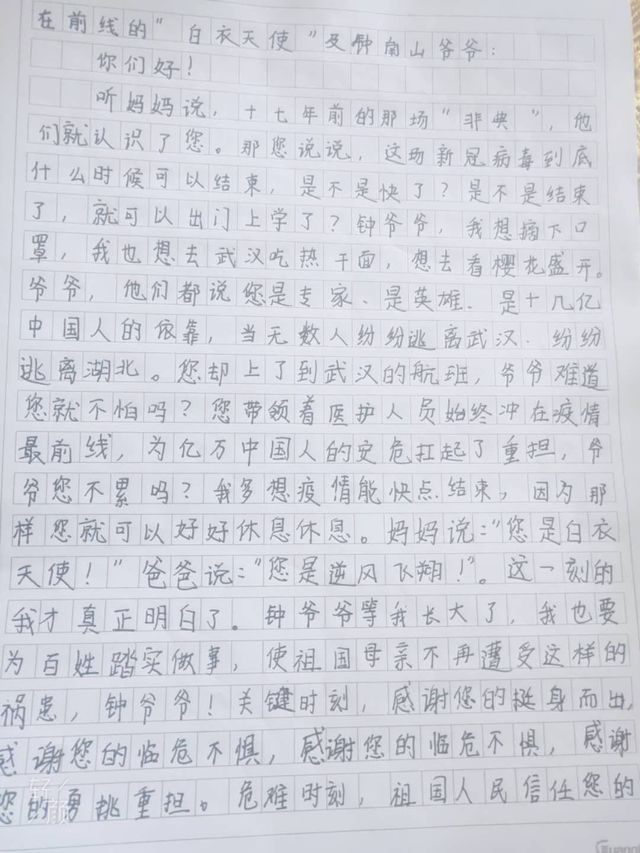 在前线的“白衣天使”及钟南山爷爷：
你们好！
听妈妈说，十七年前的那场“非典”，他
们就认识了您。那您说说，这场新冠病毒到底
什么时候可以结束，是不是快了？是不是结束
了，就可以出门上学了？钟爷爷，我想摘下口
罩，我也想去武汉吃热干面，想去看樱花盛开。
爷爷，他们都说您是专家、是英雄、是十几亿
中国人的依靠，当无数人纷纷逃离武汉、纷纷
逃离湖北。您却上了到武汉的航班，爷爷难道
您就不怕吗？您带领着医护人员始终冲在疫情
最前线，为亿万中国人的安危扛起了重担，爷
爷您不累吗？我多想疫情能快点结束，因为那
样您就可以好好休息休息。妈妈说：“您是白衣
天使！”爸爸说：“您是逆风飞翔！”。这一刻的
我才真正明白了。钟爷爷等我长大了，我也要
为百姓踏实做事，使祖国母亲不再遭受这样的
祸患，钟爷爷！关键时刻，感谢您的挺身而出，
感谢您的临危不惧，感谢您的临危不惧，感谢
您的勇挑重担。危难时刻，祖国人民信任您的
轻颜